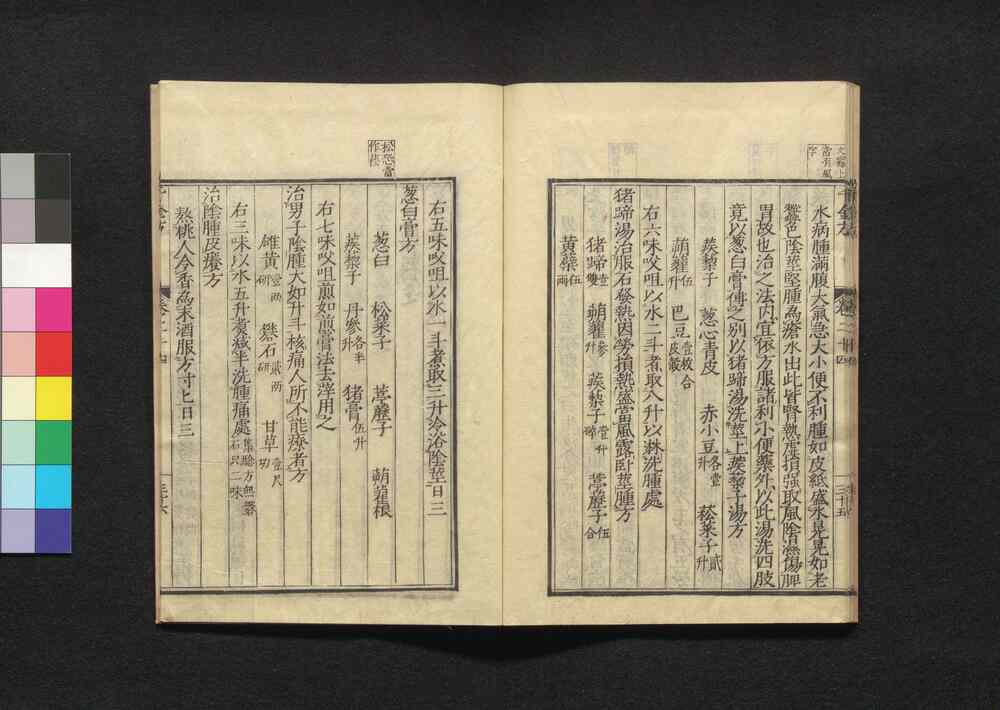 水病腫滿腹大氣急大小便不利腫如皮紙盛水晃晃如老
蠶色陰莖堅腫為瘡水出此皆腎熱虛損强取風陰濕傷脾
胃故也治之法內宜依方服諸利小便藥外以此湯洗四肢
竟以葱白膏傅之別以猪蹄湯洗莖上蒺藜子湯方
蒺藜子 葱心青皮 赤小豆各壹升 菘菜子貳升
蒴藋伍升 巴豆壹百枚合皮㪇
右六味㕮咀以水二斗煮取八升以淋洗腫處
猪蹄湯治服石發熱因勞損熱盛當風露卧莖腫方
猪蹄壹雙 蒴藋參升 蒺藜子壹升碎 葶藶子伍合
黃蘗伍兩
右五味㕮咀以水一斗煮取三升冷浴陰莖日三
葱白膏方
葱白 松菜子 葶藶子 蒴藋根
蒺藜子 丹參各半升 猪膏伍升
右七味㕮咀煎如煎膏法去滓用之
治男子陰腫大如升斗核痛人所不能療者方
雄黃壹兩研 礬石貳兩研 甘草壹尺切
右三味以水五升煮減半洗腫痛處集驗方無礬石只二味
治陰腫皮癢方
熬桃人令香為末酒服方寸匕日三
松恐當作菘